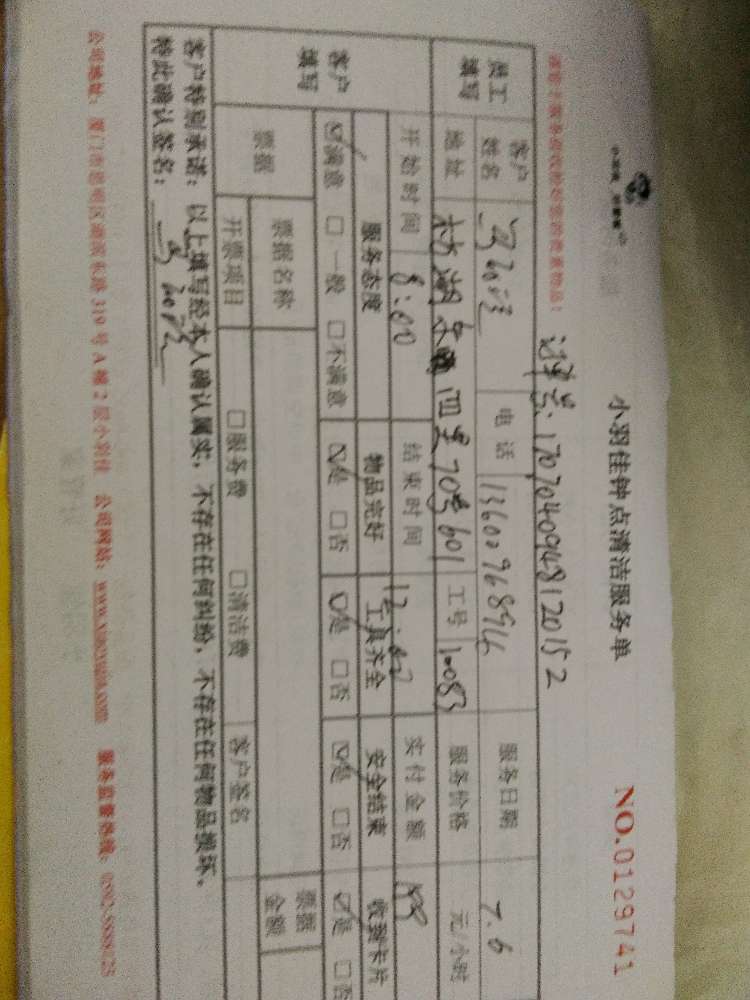 小羽佳钟点清洁服务单 NO.0129741
1707040948120152
员工填写 客户姓名 电话 13600968994 服务日期 7.6
地址 枋湖东 四里70号601 工号 10083 服务价格 元/小时
客户填写 开始时间 8:00 结束时间 12:00 实付金额
服务态度 物品完好 工具齐全 安全结束 收到卡片
☑满意 □一般 □不满意 ☑是 □否 ☑是 □否 ☑是 □否 ☑是 □否
票据 票据名称 票据金额
开票项目 □服务费 □清洁费 客户签名
客户特别承诺：以上填写经本人确认属实，不存在任何纠纷，不存在任何物品损坏。
特此确认签名：
公司地址：厦门市思明区 319号A幢2层小羽佳 公司网站：www.xiaoyujia.com 服务监督热线：